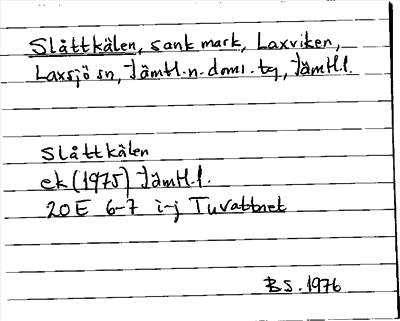 Slåttkälen, sank mark, Laxviken,
Laxsjö sn, Jämtl. n. doms. tg, Jämtl. l.
Slåttkälen
ek (1975) Jämtl. l.
20E 6-7 i-j Tuvattnet
BS. 1976